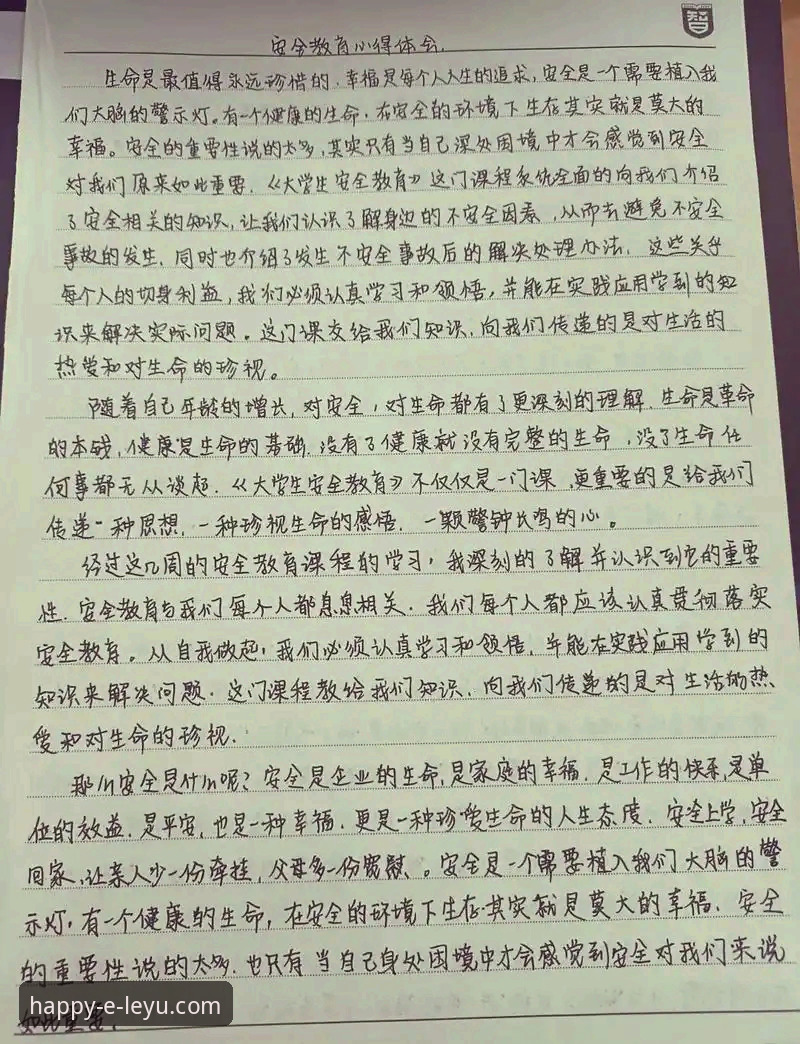 智
安全教育心得体会.
生命是最值得永远珍惜的.幸福是每个人人生的追求,安全是一个需要植入我
们大脑的警示灯。有一个健康的生命,在安全的环境下生存其实就是莫大的
幸福。安全的重要性说的太多,其实只有当自己深处困境中才会感觉到安全
对我们原来如此重要.《大学生安全教育》这门课程系统全面的向我们介绍
了安全相关的知识,让我们认识了解身边的不安全因素,从而去避免不安全
事故的发生.同时也介绍了发生不安全事故后的解决处理办法.这些关乎
每个人的切身利益,我们必须认真学习和领悟,并能在实践应用学到的知
识来解决实际问题。这门课交给我们知识,向我们传递的是对生活的
热爱和对生命的珍视。
随着自己年龄的增长,对安全,对生命都有了更深刻的理解.生命是革命
的本钱,健康是生命的基础.没有了健康就没有完整的生命,没了生命任
何事都无从谈起.《大学生安全教育》不仅仅是一门课,更重要的是给我们
传递一种思想,一种珍视生命的感悟.一颗警钟长鸣的心。
经过这几周的安全教育课程的学习,我深刻的了解并认识到它的重要
性.安全教育与我们每个人都息息相关.我们每个人都应该认真贯彻落实
安全教育。从自我做起,我们必须认真学习和领悟,并能在实践应用学到的
知识来解决问题.这门课程教给我们知识.向我们传递的是对生活的热
爱和对生命的珍视.
那么安全是什么呢?安全是企业的生命,是家庭的幸福.是工作的快乐,是单
位的效益.是平安,也是一种幸福.更是一种珍爱生命的人生态度.安全上学,安全
回家,让亲人少一份牵挂,父母多一份宽慰、。安全是一个需要植入我们大脑的警
示灯,有一个健康的生命,在安全的环境下生存其实就是莫大的幸福.安全
的重要性说的太多.也只有当自己身处困境中才会感觉到安全对我们来说
如此重要.
happy-e-leyu.com